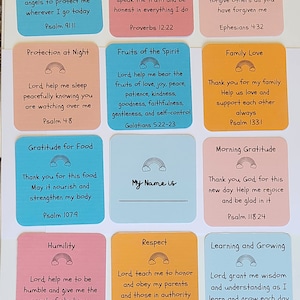 angels to protect me
wherever I go today
Psalm 91:11
honest in everything I do
Proverbs 12:22
others just as you
have forgiven me
Ephesians 4:32
Protection at Night
Lord, help me sleep
peacefully knowing you
are watching over me
Psalm 4:8
Fruits of the Spirit
Lord, help me bear the
fruits of love, joy, peace
patience, kindness,
goodness, faithfulness,
gentleness, and self-control
Galatians 5:22-23
Family Love
Thank you for my family
Help us love and
support each other
always
Psalm 133:1
Gratitude for Food
Thank you for this food
May it nourish and
strengthen my body
Psalm 107:9
My Name is
Morning Gratitude
Thank you, God, for this
new day. Help me rejoice
and be glad in it
Psalm 118:24
Humility
Lord, help me to be
humble and give me the
Respect
Lord, teach me to honor
and obey my parents
and those in authority
Learning and Growing
Lord, grant me wisdom
and understanding as I
learn and grow each day